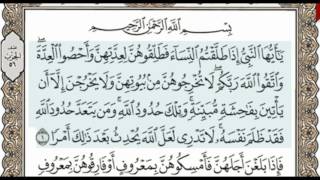 بِسْمِ اللَّهِ الرَّحْمَٰنِ الرَّحِيمِ
يَٰٓأَيُّهَا النَّبِيُّ إِذَا طَلَّقْتُمُ النِّسَآءَ فَطَلِّقُوهُنَّ لِعِدَّتِهِنَّ وَأَحْصُوا الْعِدَّةَ
وَاتَّقُوا اللَّهَ رَبَّكُمْ لَا تُخْرِجُوهُنَّ مِنۢ بُيُوتِهِنَّ وَلَا يَخْرُجْنَ إِلَّآ أَن
يَأْتِينَ بِفَٰحِشَةٍ مُّبَيِّنَةٍ وَتِلْكَ حُدُودُ اللَّهِ وَمَن يَتَعَدَّ حُدُودَ اللَّهِ
فَقَدْ ظَلَمَ نَفْسَهُ لَا تَدْرِي لَعَلَّ اللَّهَ يُحْدِثُ بَعْدَ ذَٰلِكَ أَمْرًا ١
فَإِذَا بَلَغْنَ أَجَلَهُنَّ فَأَمْسِكُوهُنَّ بِمَعْرُوفٍ أَوْ فَارِقُوهُنَّ بِمَعْرُوفٍ
الحزب
٥٦